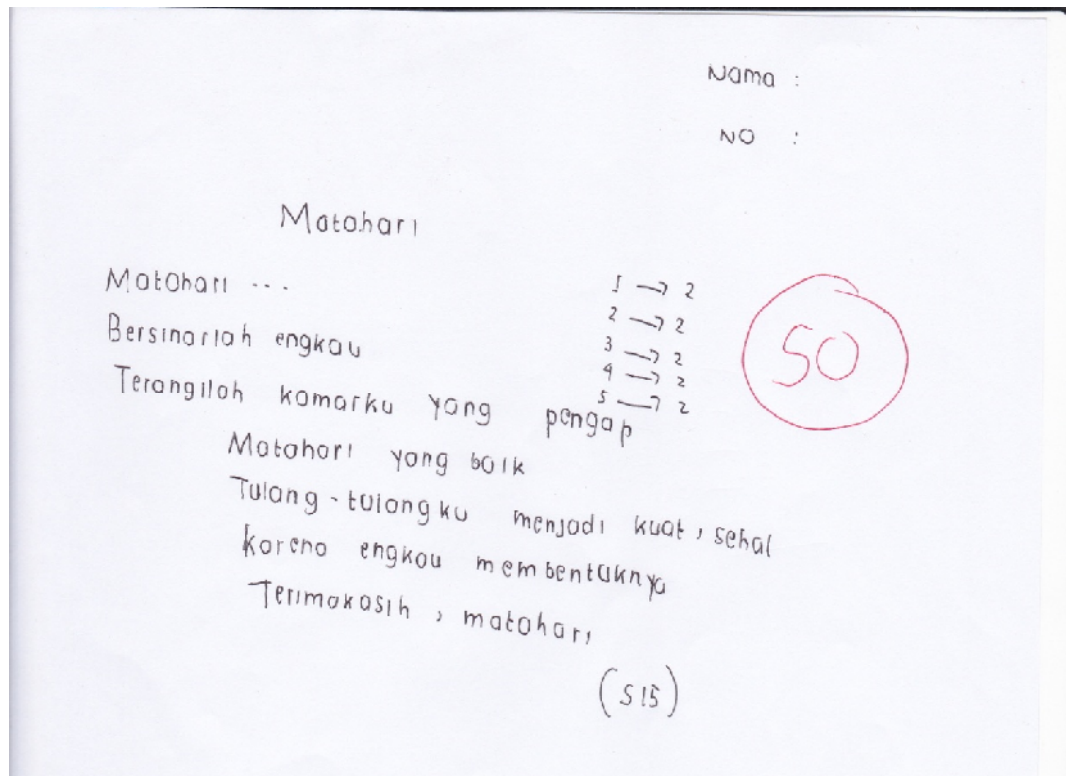 Nama :
NO :
Matahari
Matahari ...
Bersinarlah engkau
Terangilah kamarku yang pengap
Matahari yang baik
Tulang-tulangku menjadi kuat, sehat
karena engkau membentuknya
Terimakasih, matahari
(S15)
1 → 2
2 → 2
3 → 2
4 → 2
5 → 2
50